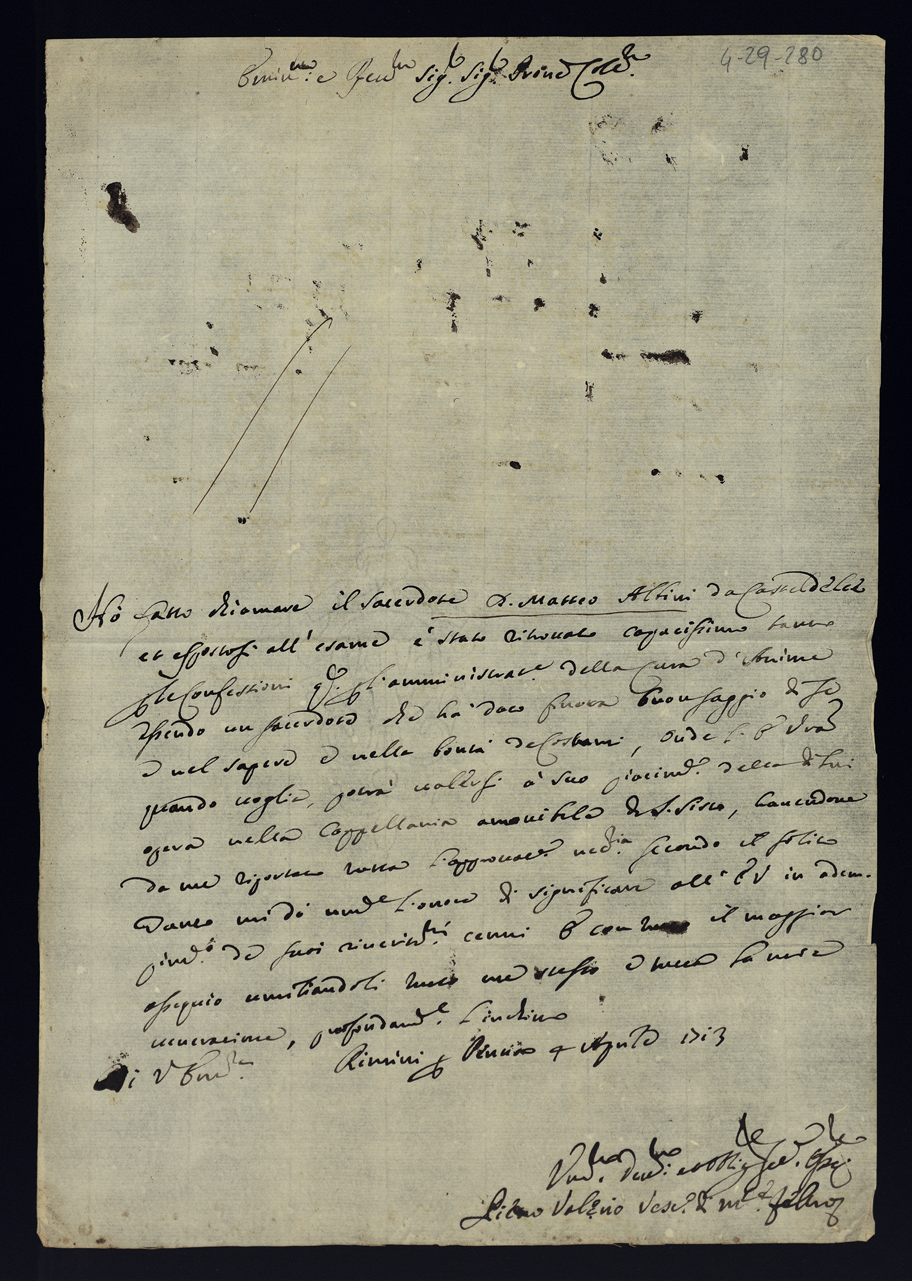 Emin.mo e Rev.mo Sig.r Sig.r Prin̄e Col.mo
4-29-280
Hò fatto chiamare il Sacerdote D. Matteo Altini da Casteldelci
et espostosi all' esame è stato ritrovato capacissimo tanto
p le Confessioni q.to p l'amministrat.e della Cura d'Anime
essendo un sacerdote che hà dato finora buon saggio di se
e nel sapere e nella bontà de Costumi, onde l' E Vrā
quando voglia, potrà valersi à suo piacim.to della di lui
opera nella Cappellania amovibile di S. Sisto, havendone
da me riportata tutta l'approvat.e nec.ria secondo il solito
Tanto mi dò um.te l'onore di significare all' E V in adem-
pim.to de suoi riveriti.mi cenni E con il maggior
ossequio umiliandoli tutto me stesso e tutta la mia
venerazione, profondam.te l'inchino
Di V Em.za Rimini p Pennino 4 Agosto 1713
Um.mo Dev.mo et Obblig.mo Ser.
Pietro Valerio Vesc.o di M.te Feltro